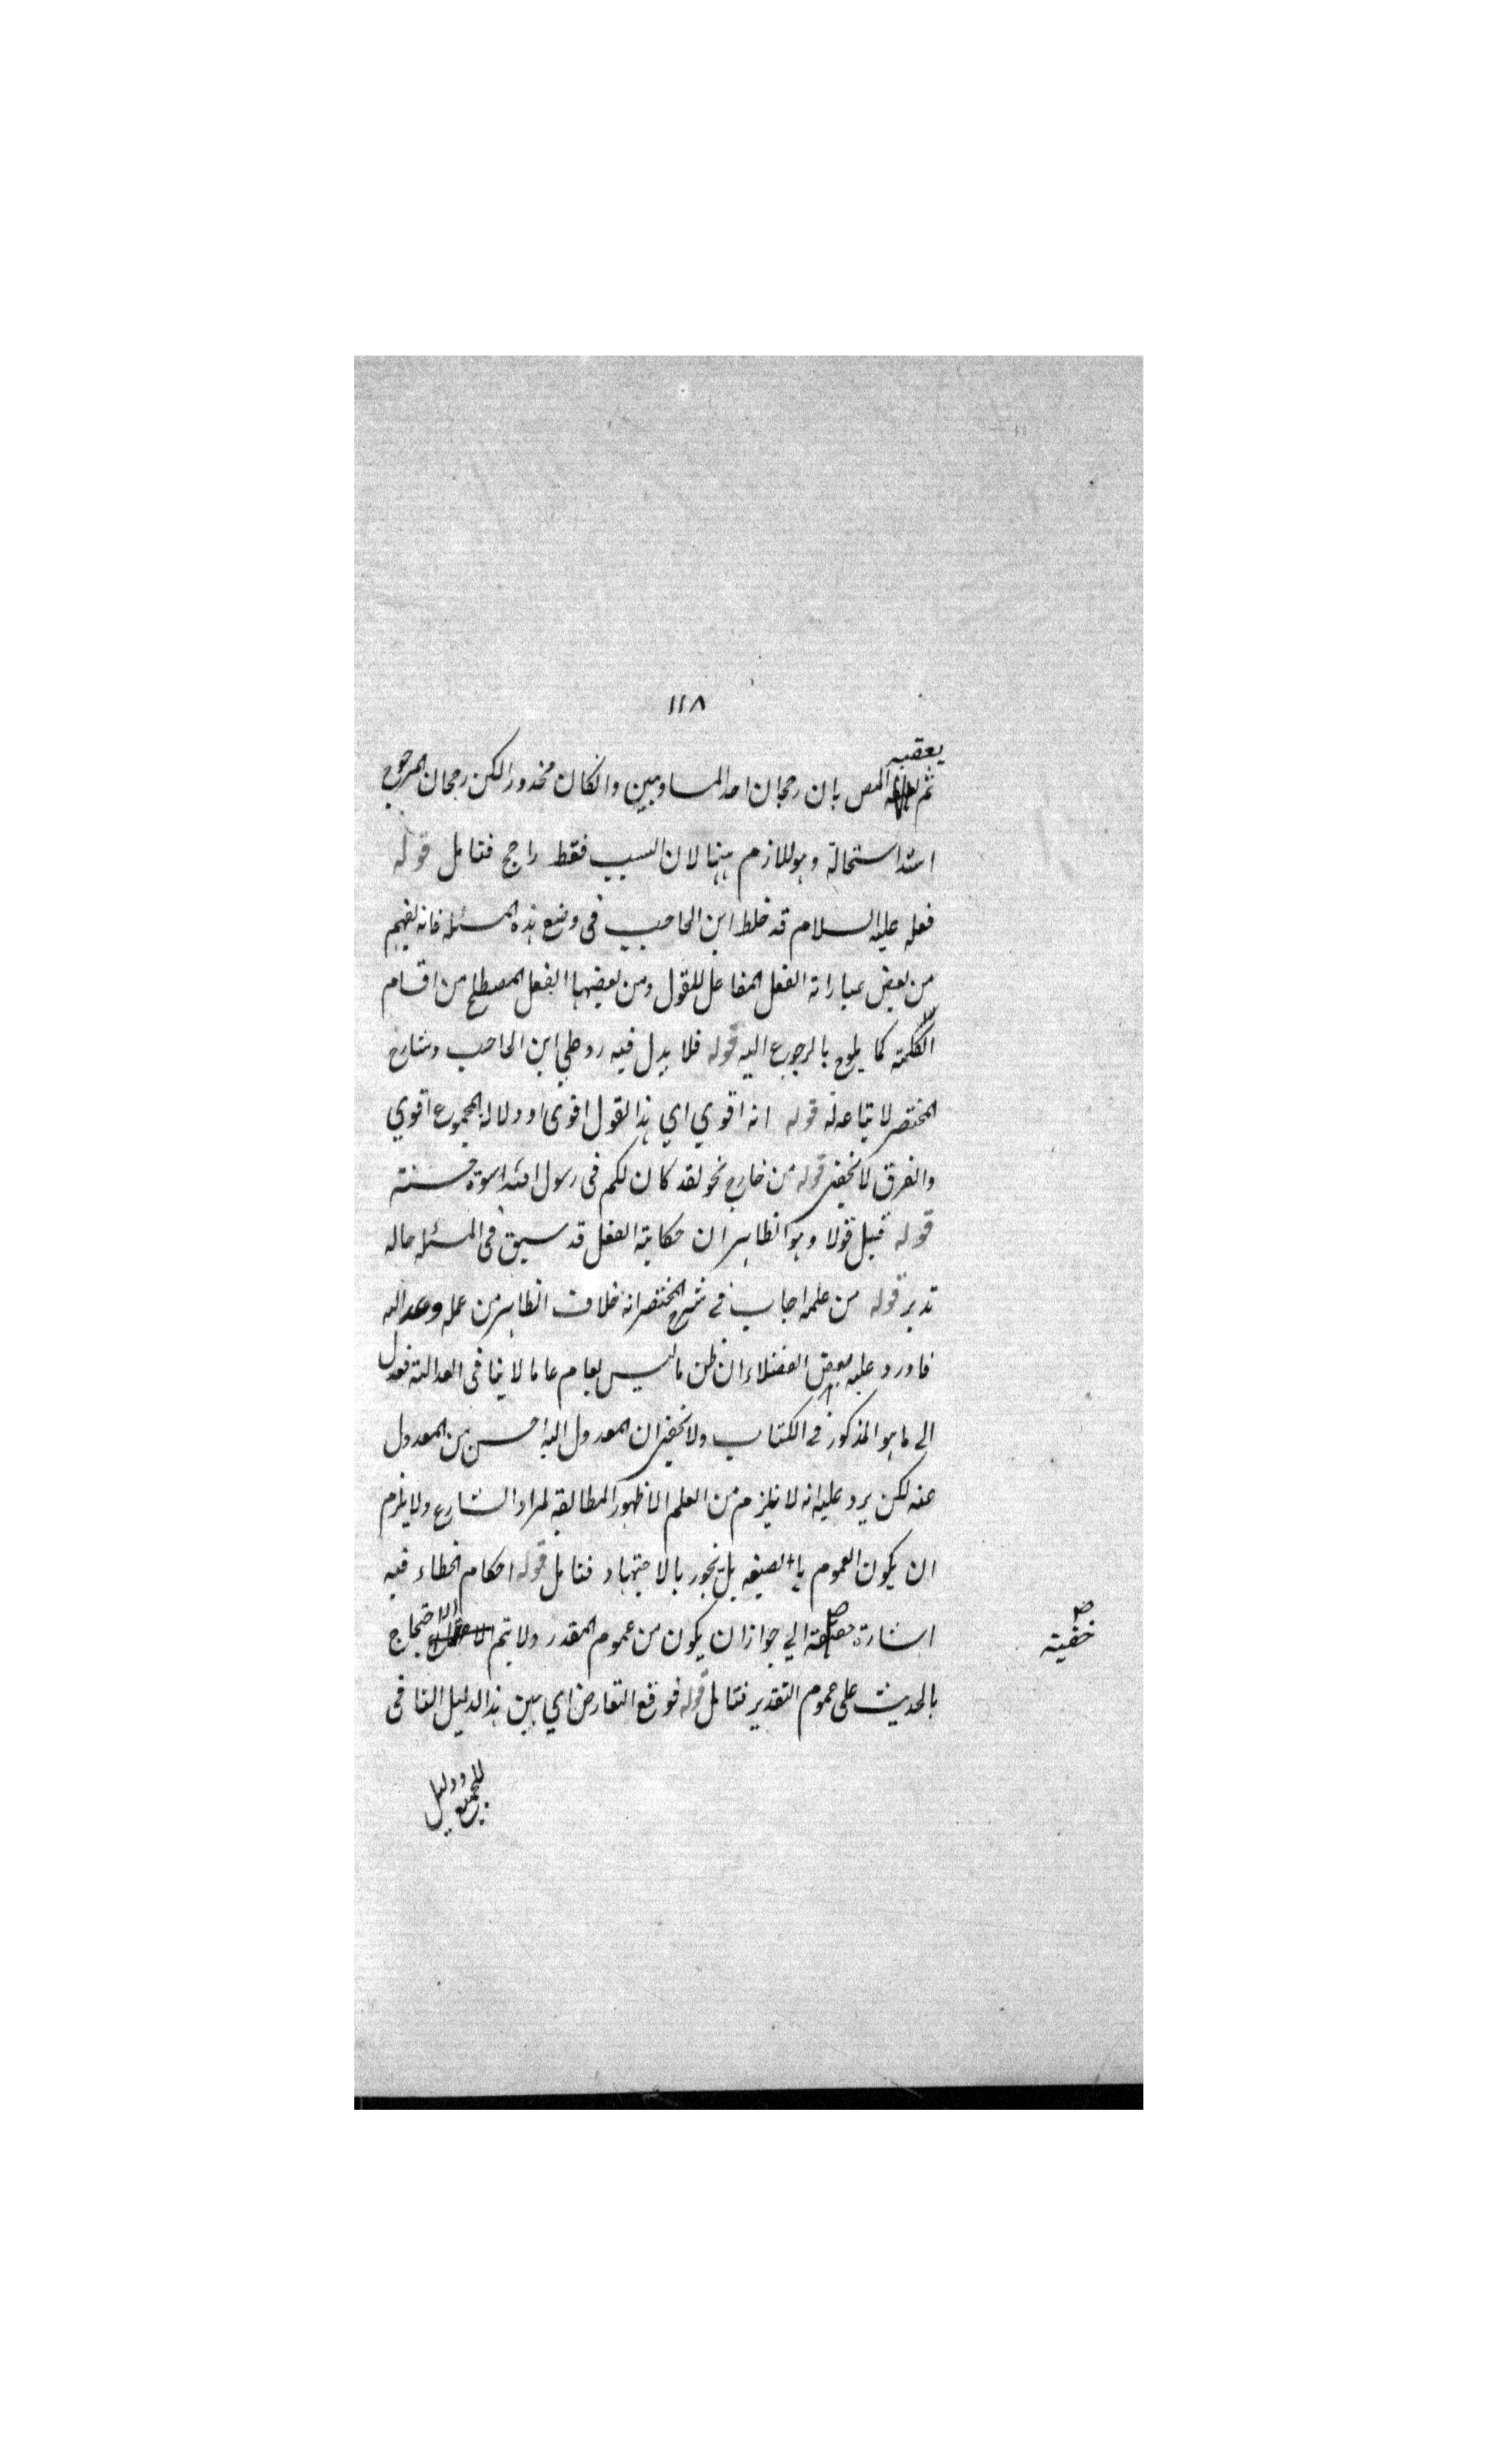 ١١٨
يعقبه
ثم المص بان رجحان احد المساويين وانكان محذورا لكن رجحان المرجوح
اشد استحالة وهو اللازم ههنا لان السبب فقط راجح فتامل قوله
فعله عليه السلام قد خلط ابن الحاجب فى وضع هذه المسئله فانه يفهم
من بعض عباراته الفعل المقابل للقول ومن بعضها الفعل المصطلح من اقسام
الكلمة كما يلوح بالرجوع اليه قوله فلا يدل فيه رد على ابن الحاجب وشارح
المختصر لا تباعد له قوله انه اقوي اي هذا القول اقوى او دلالة المجموع اقوي
والفرق لا يخفى قوله من خارج نحو لقد كان لكم فى رسول الله اسوة حسنة
قوله قيل قولا وهو الظاهر ان حكاية الفعل قد سبق فى المسئله حاله
تدبر قوله من علمه اجاب في شرح المختصر انه خلاف الظاهر من عمله وعدالته
فاورد عليه بعض الفضلاء ان ظن ما ليس بعام عاما لا ينافى العدالة فعدل
الى ما هو المذكور في الكتاب ولا يخفى ان المعدول اليه احسن من المعدول
عنه لكن يرد عليه انه لا يلزم من العلم الا ظهور المطابقة لمراد الشارع ولا يلزم
ان يكون العموم بالصيغه بل يجوز بالاجتهاد فتامل قوله احكام الخطاء فيه
اشارة الي جواز ان يكون من عموم المقدر ولا يتم الاحتجاج
خفية
بالحديث على عموم التقدير فتامل قوله فوقع التعارض اي بين هذا الدليل النافى
للجميع ودليل